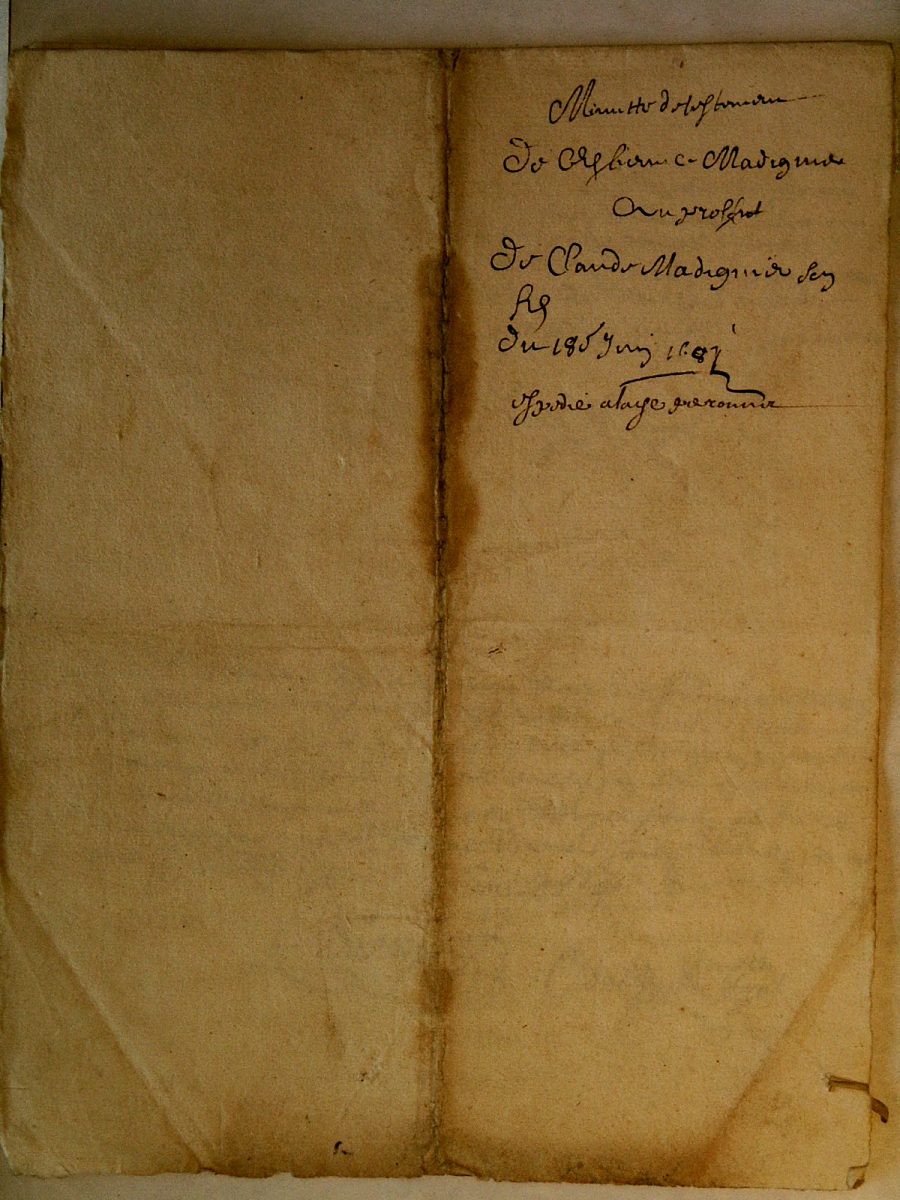 Minutte de testemen
De Estienne Madignier
Au proffit
De Claude Madignier son
fils
Du 18e Juin 1687